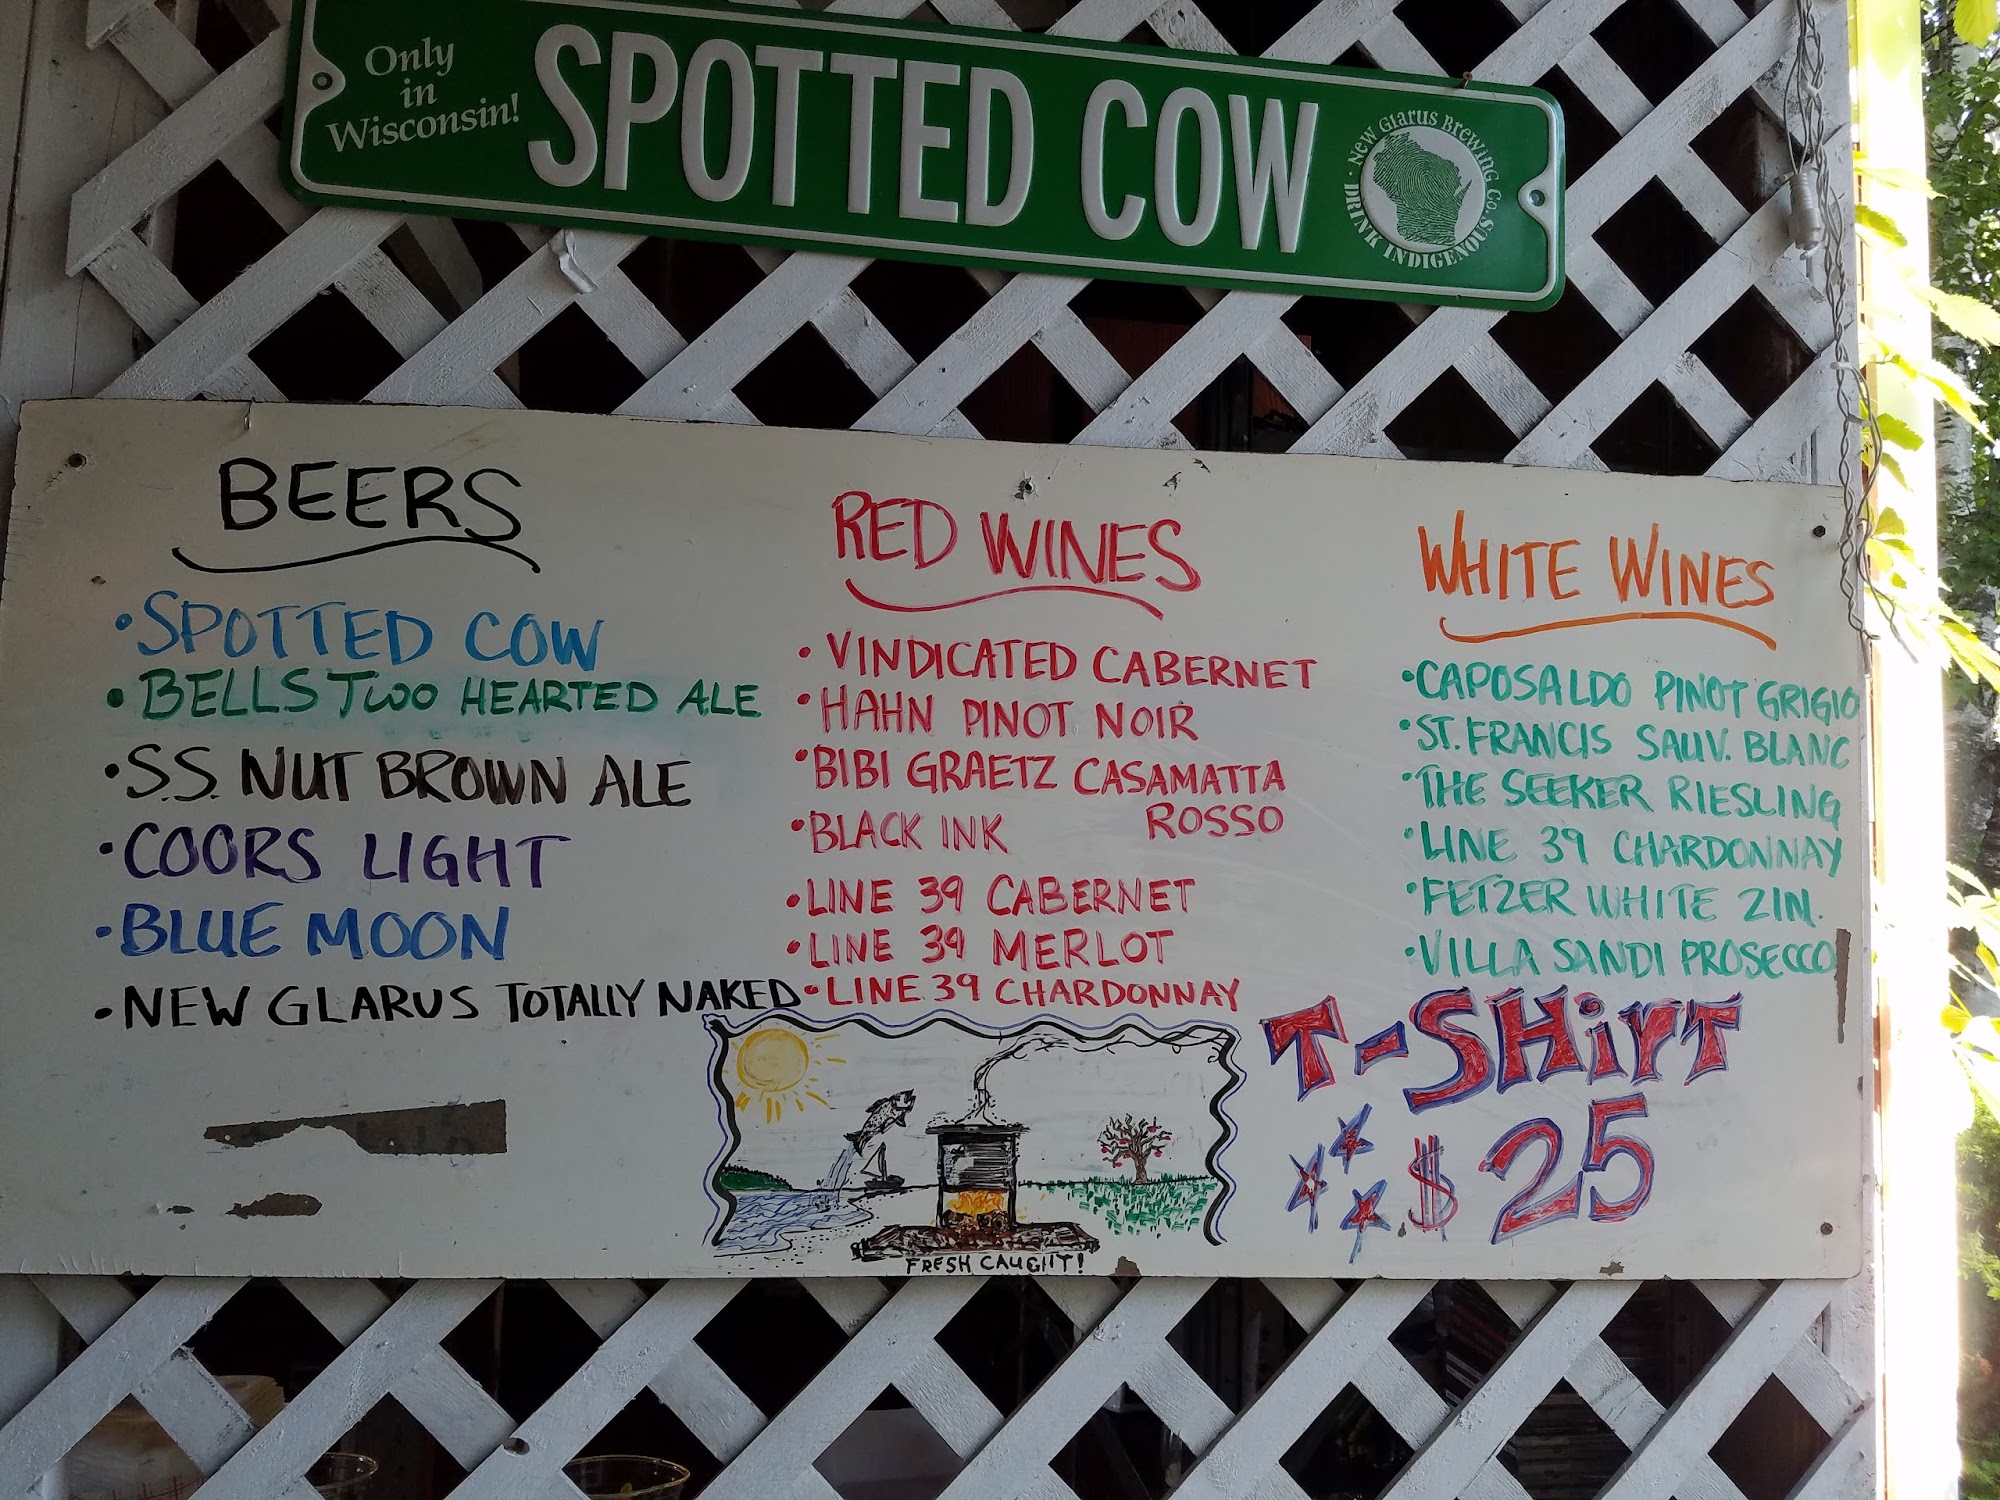 Only
in
Wisconsin!
SPOTTED COW
NEW GLARUS BREWING CO.
· DRINK INDIGENOUS
BEERS
• SPOTTED COW
• BELLS TWO HEARTED ALE
• S.S. NUT BROWN ALE
• COORS LIGHT
• BLUE MOON
• NEW GLARUS TOTALLY NAKED
RED WINES
• VINDICATED CABERNET
• HAHN PINOT NOIR
• BIBI GRAETZ CASAMATTA
ROSSO
• BLACK INK
• LINE 39 CABERNET
• LINE 39 MERLOT
• LINE 39 CHARDONNAY
WHITE WINES
• CAPOSALDO PINOT GRIGIO
• ST. FRANCIS SAUV. BLANC
• THE SEEKER RIESLING
• LINE 39 CHARDONNAY
• FETZER WHITE ZIN.
• VILLA SANDI PROSECCO
T-SHirT
$25
FRESH CAUGHT!